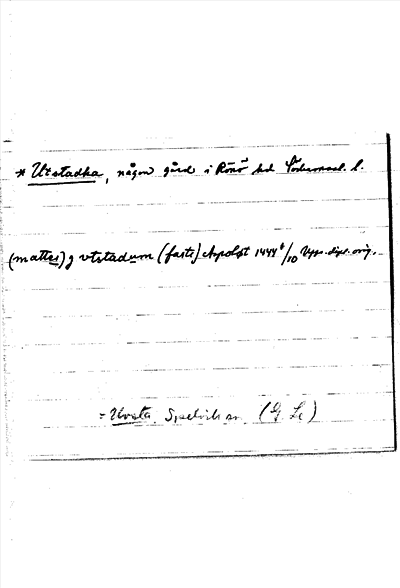 * Utstadha, någon gård i Rönö hd Södermanl. l.
(mattes) j vtstadum (faste) 1444 6/10 Upps. dipl. orig.
= Uvsta, Spelvik sn (G. Lc)